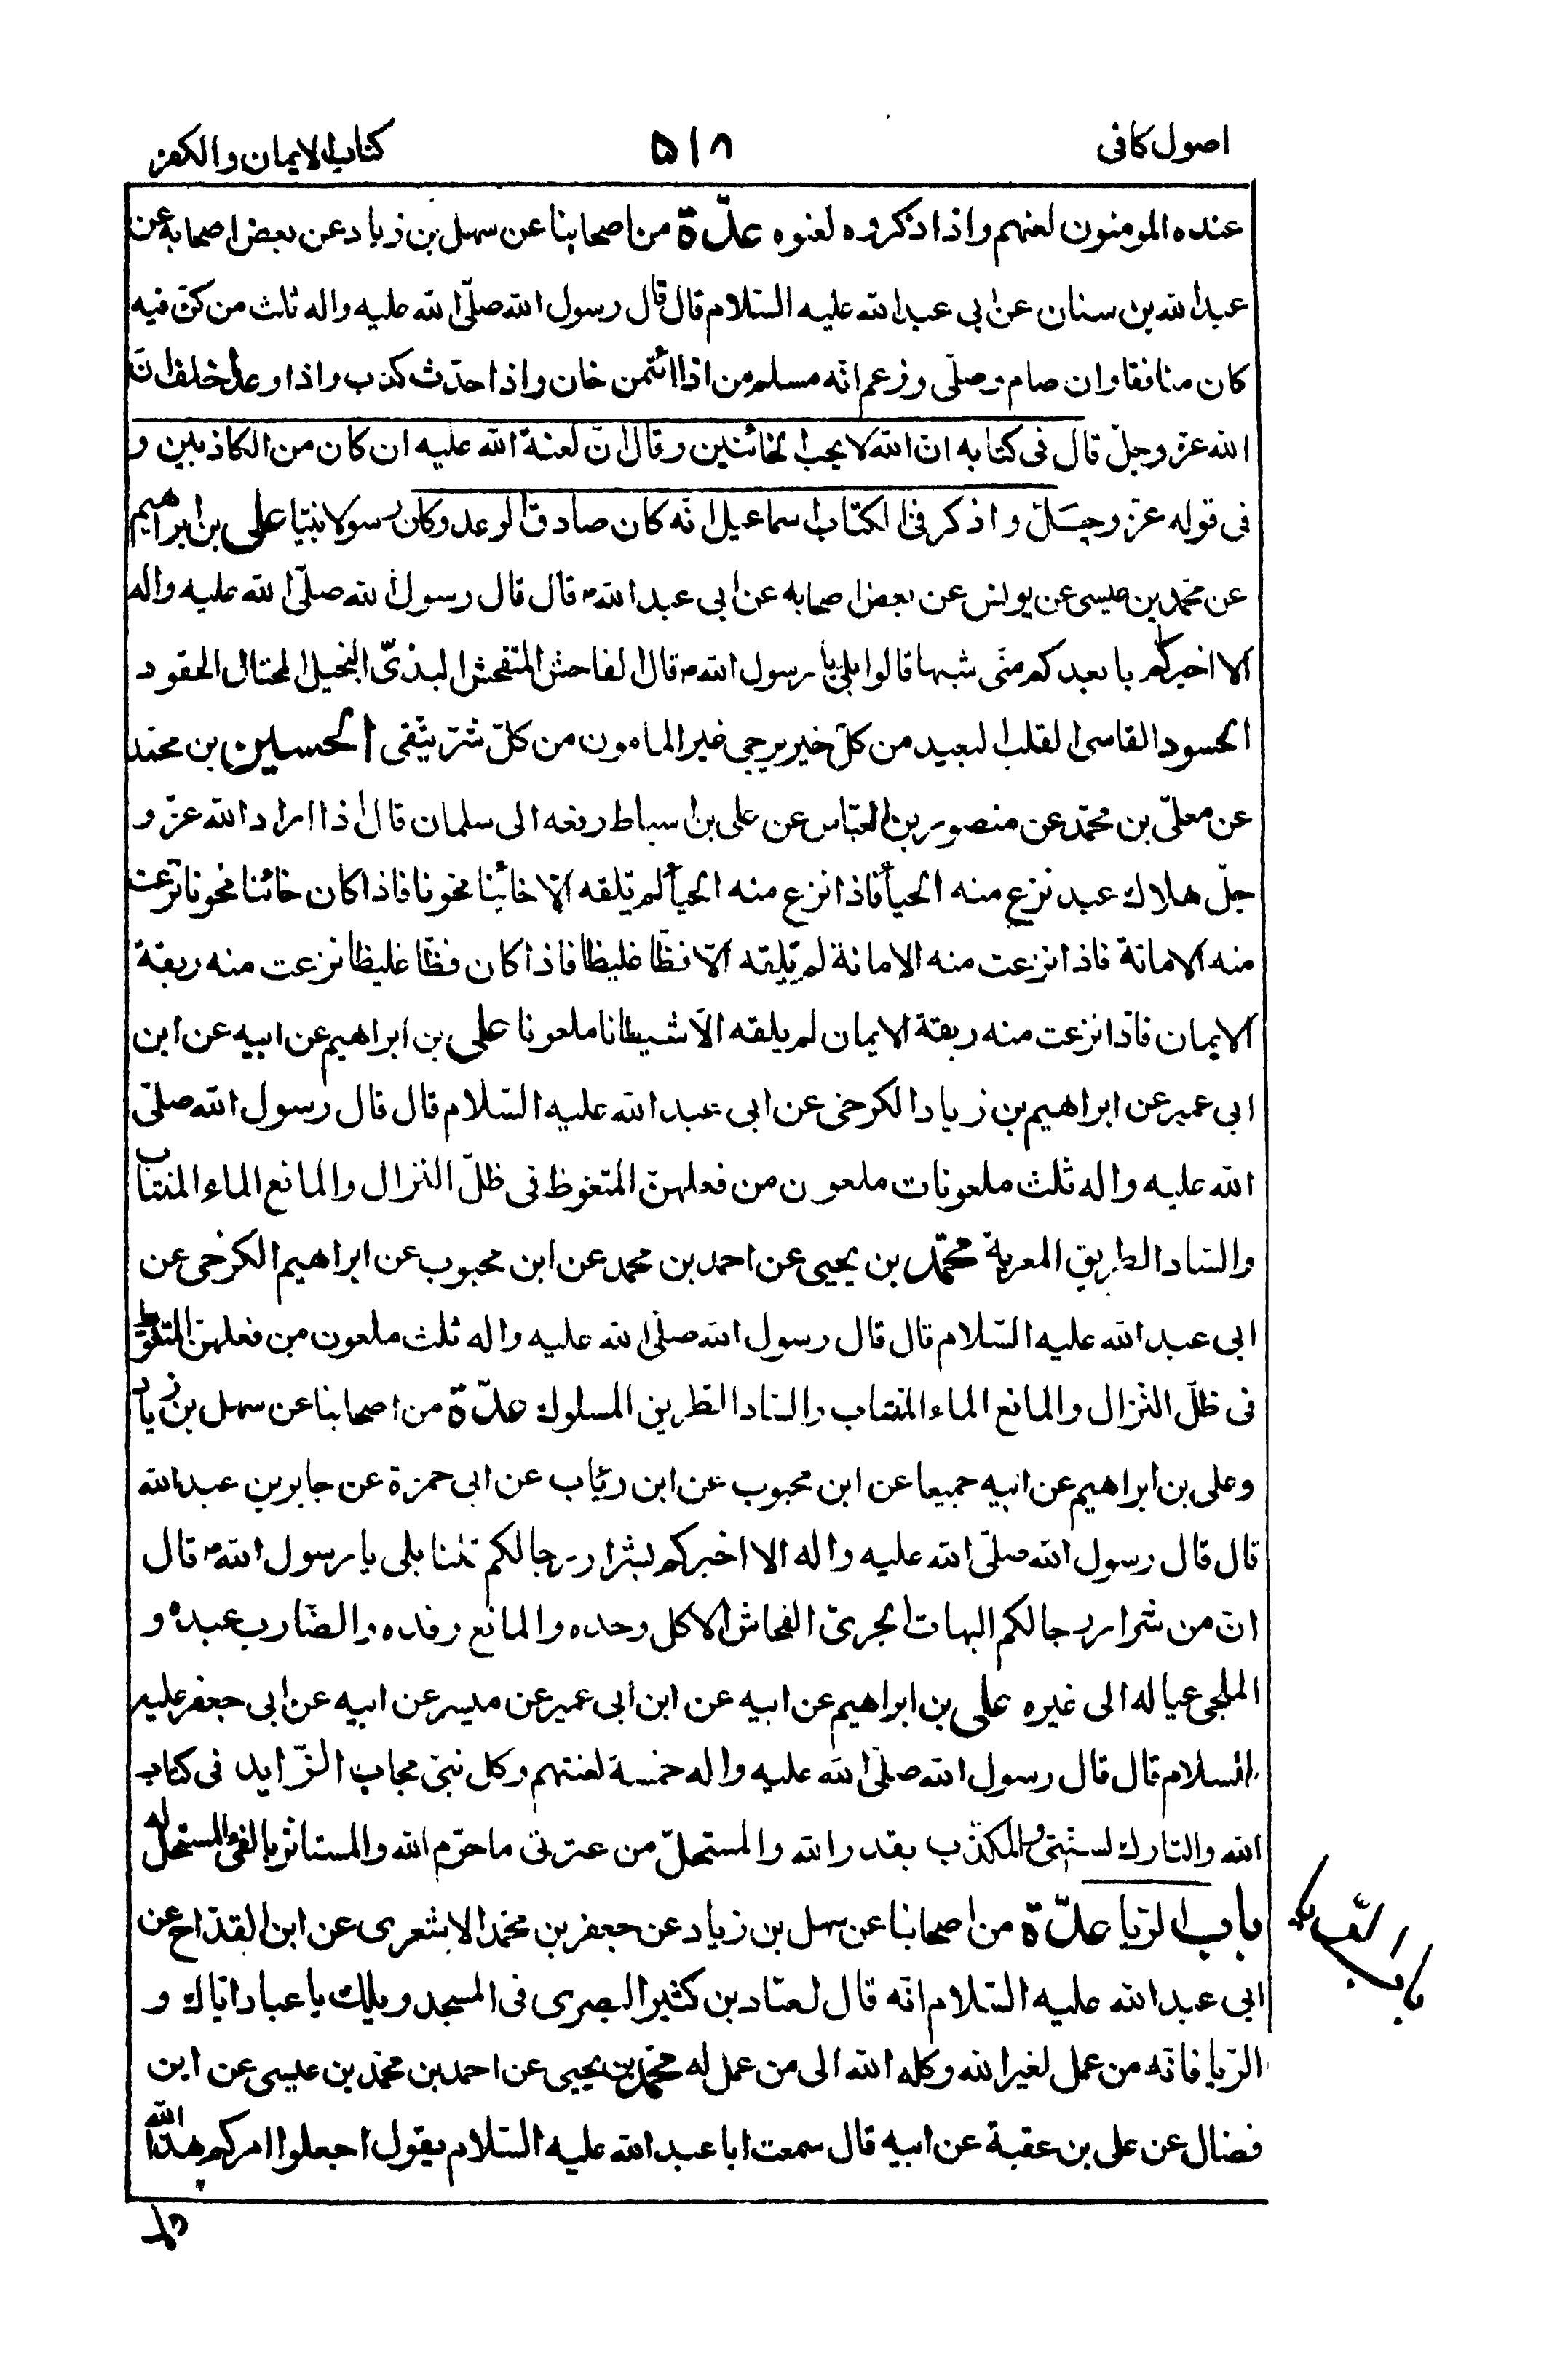 اصول كافى
٥١٨
كتاب الايمان والكفر
عنده المومنون لعنهم واذا ذكروه لعنوه عدّة من اصحابنا عن سهل بن زياد عن بعض اصحابه عن
عبد الله بن سنان عن ابى عبد الله عليه السّلام قال قال رسول الله صلّى الله عليه واله ثلث من كنّ فيه
كان منافقا وان صام وصلّى وزعم انّه مسلم من اذا ائتمن خان واذا حدّث كذب واذا وعد اخلف انّ
الله عزّ وجلّ قال فى كتابه انّ الله لا يحب الخائنين وقال انّ لعنة الله عليه ان كان من الكاذبين و
فى قوله عزّ وجلّ واذكر فى الكتاب اسماعيل انّه كان صادق الوعد وكان رسولا نبيّا على بن ابراهيم
عن محمّد بن عيسى عن يونس عن بعض اصحابه عن ابى عبد الله ع قال قال رسول الله صلّى الله عليه واله
الا اخبركم بابعدكم منّى شبها قالوا بلى يا رسول الله ص قال الفاحش المتفحّش البذىّ البخيل المختال الحقود
الحسود القاسى القلب البعيد من كلّ خير يرجى غير المامون من كلّ شرّ يتّقى الحسين بن محمّد
عن معلّى بن محمّد عن منصور بن العبّاس عن على بن اسباط رفعه الى سلمان قال اذا اراد الله عزّ و
جلّ هلاك عبد نزع منه الحيأ فاذا نزع منه الحيأ لم تلقه الّا خائنا مخونا فاذا كان خائنا مخونا نزعت
منه الامانة فاذا نزعت منه الامانة لم تلقه الّا فظّا غليظا فاذا كان فظّا غليظا نزعت منه ربقة
الايمان فاذا نزعت منه ربقة الايمان لم يلقه الّا شيطانا ملعونا على بن ابراهيم عن ابيه عن ابن
ابى عمير عن ابراهيم بن زياد الكرخى عن ابى عبد الله عليه السّلام قال قال رسول الله صلّى
الله عليه واله ثلث ملعونات ملعون من فعلهنّ المتغوّط فى ظلّ النزال والمانع الماء المنتاب
والسّاد الطريق المعربة محمّد بن يحيى عن احمد بن محمد عن ابن محبوب عن ابراهيم الكرخى عن
ابى عبد الله عليه السّلام قال قال رسول الله صلّى الله عليه واله ثلث ملعون من فعلهنّ المتغوّط
فى ظلّ النّزال والمانع الماء المنتاب والسّاد الطّريق المسلوك عدّة من اصحابنا عن سهل بن زياد
وعلى بن ابراهيم عن ابيه جميعا عن ابن محبوب عن ابن رئاب عن ابى حمزة عن جابر بن عبد الله
قال قال رسول الله صلّى الله عليه واله الا اخبركم بشرار رجالكم قلنا بلى يا رسول الله ص قال
انّ من شرار رجالكم البهات الجرىّ الفحاش الاكل وحده والمانع رفده والضّارب عبده و
الملجى عياله الى غيره على بن ابراهيم عن ابيه عن ابن ابى عمير عن ميسر عن ابيه عن ابى جعفر عليه
السلام قال قال رسول الله صلّى الله عليه واله خمسة لعنتهم وكل نبىّ مجاب الزّايد فى كتاب
الله والتارك لسنّتى والمكذّب بقدر الله والمستحلّ من عترتى ما حرّم الله والمستاثر بالفئ والمستحلّ له
باب الريا عدّة من اصحابنا عن سهل بن زياد عن جعفر بن محمّد الاشعرى عن ابن القدّاح عن
ابى عبد الله عليه السّلام انّه قال لعبّاد بن كثير البصرى فى المسجد ويلك يا عباد ايّاك و
الرّيا فانّه من عمل لغير الله وكله الله الى من عمل له محمّد بن يحيى عن احمد بن محمّد بن عيسى عن ابن
فضال عن على بن عقبة عن ابيه قال سمعت ابا عبد الله عليه السّلام يقول اجعلوا امركم هذا لله